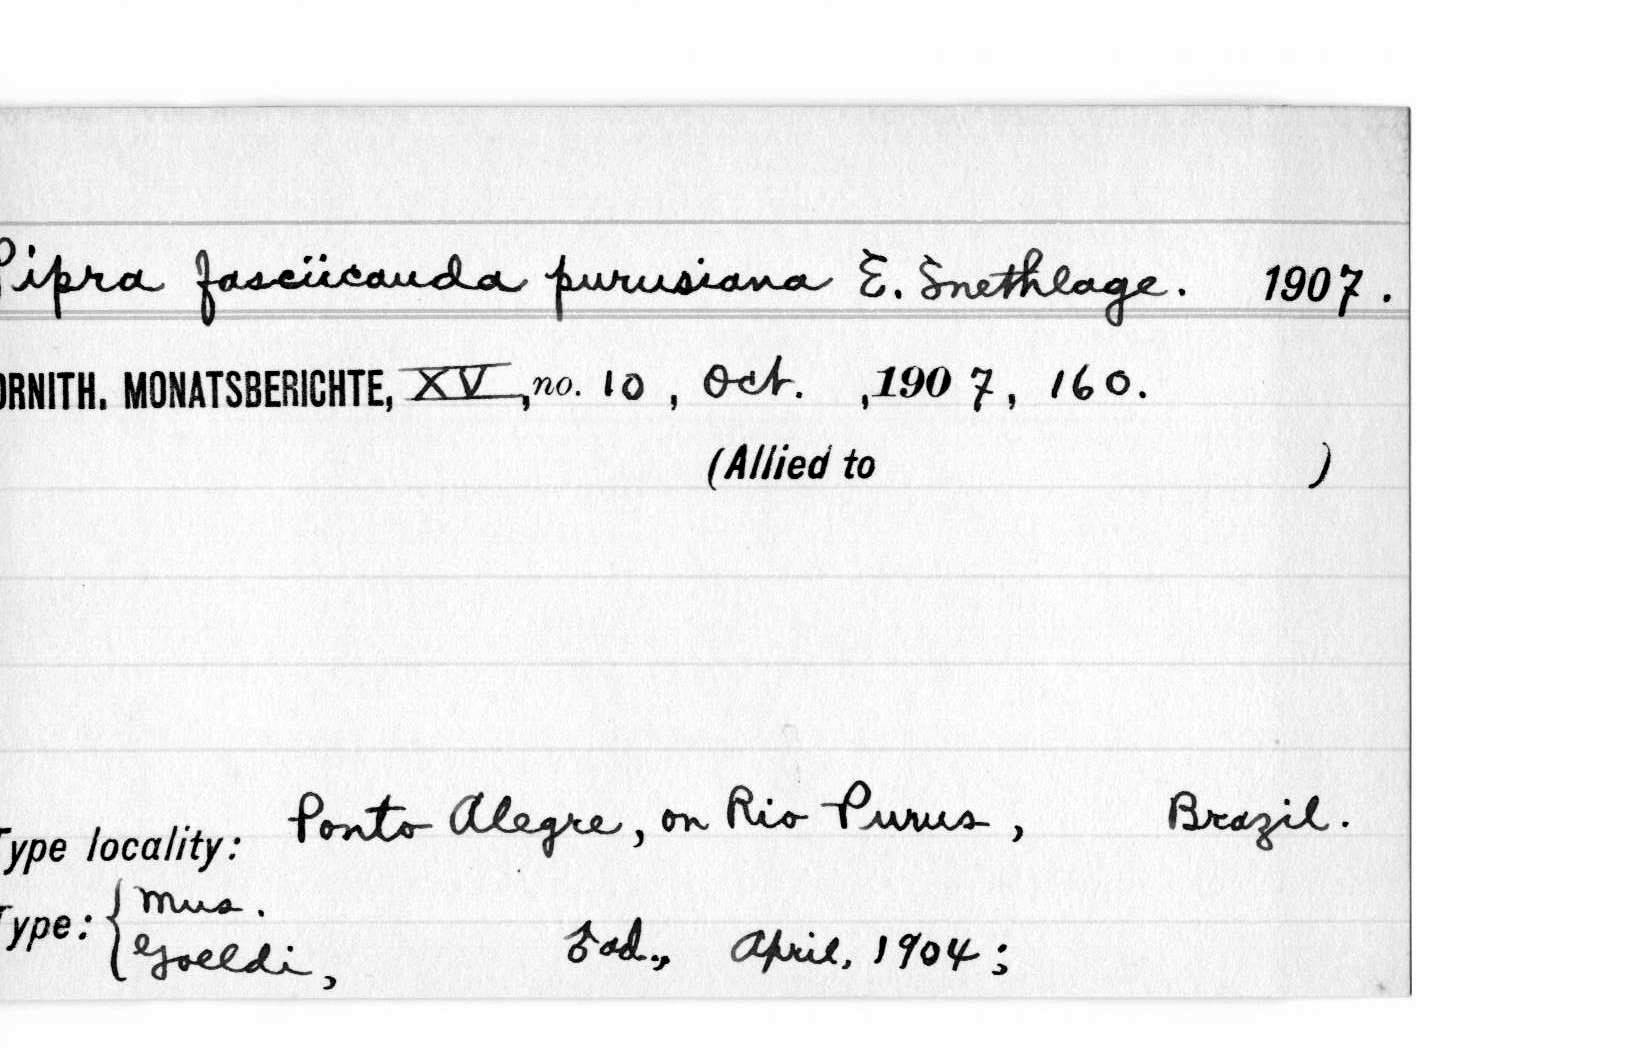 Pipra fasciicauda purusiana E. Snethlage. 1907.
ORNITH. MONATSBERICHTE, XV, no. 10, Oct. ,1907, 160.
(Allied to )
Type locality: Ponto Alegre, on Rio Purus, Brazil.
Type: { Mus.
Goeldi, ♂ad., April, 1904;